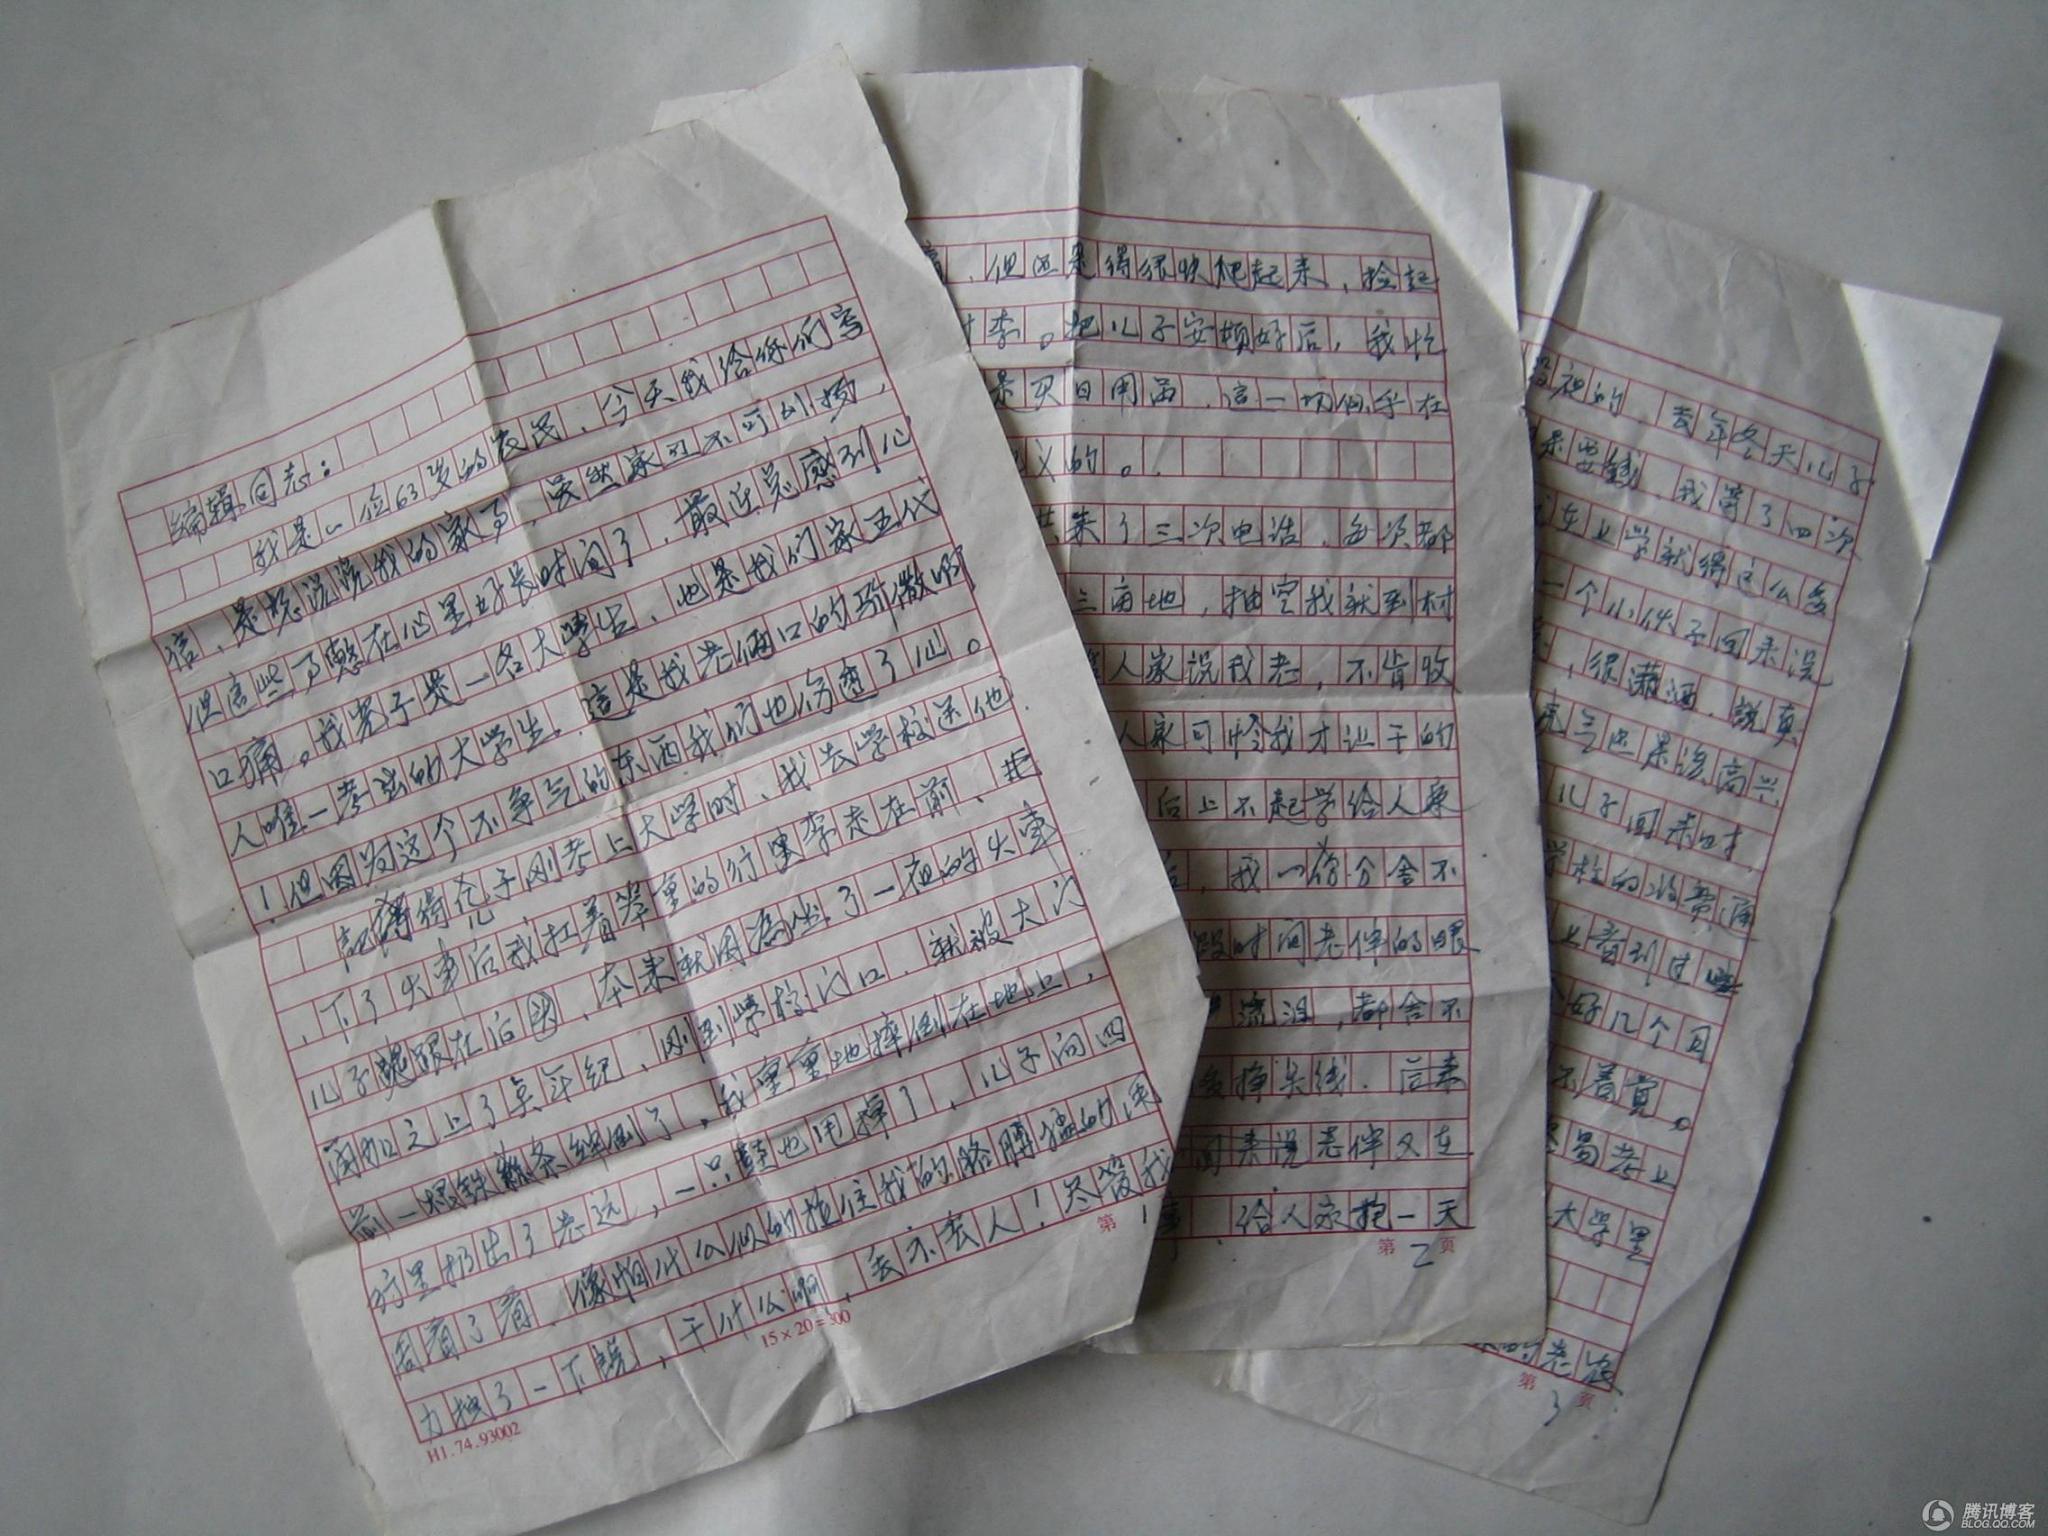 编辑同志：
我是一位63岁的农民，今天我给你们写
信，是想说说我的家事，虽然家丑不可外扬，
但这些事憋在心里好长时间了，最近总感到心
口痛。我儿子是一名大学生，也是我们家五代
人唯一考出的大学生，这是我老俩口的骄傲啊
！但因为这个不争气的东西我们也伤透了心。
記得儿子刚考上大学时，我去学校送他
，下了火車后我扛着笨重的行李走在前，
儿子跟在后，本来就因为坐了一夜的火車
再加之上了点年纪，刚到学校门口，就被大门
前一根铁条绊倒了，我重重地摔倒在地上，
行里扔出了老远，一只鞋也甩掉了，儿子向四
周看了看，像怕什么似的拽住我的胳膊猛的使
力拽了一下說，干什么啊，丢不丢人！尽管我
H1.74.93002
15×20=300
第1
痛，但还是得很快爬起来，捡起
李。把儿子安顿好后，我忙
是买日用品，这一切似乎在
义的。
共来了三次电话，每次都
三亩地，抽空我就到村
人家说我老，不肯收
人家可怜我才让干的
后上不起学给人
，我一分舍不
段时间老伴的眼
流泪，都舍不
后来
回来说老伴又在
事，给人家抱一天
第2頁
没视的，去年冬天儿子
是要钱，我寄了四次
在上学就得这么多
一个小伙子回来没
，很潇洒，說真
气还是该高兴
儿子回来时，
学校的收費
上看到过
好几个月
不着覚。
容易考上
大学里
的老农
第3頁
腾讯博客
BLOG.QQ.COM